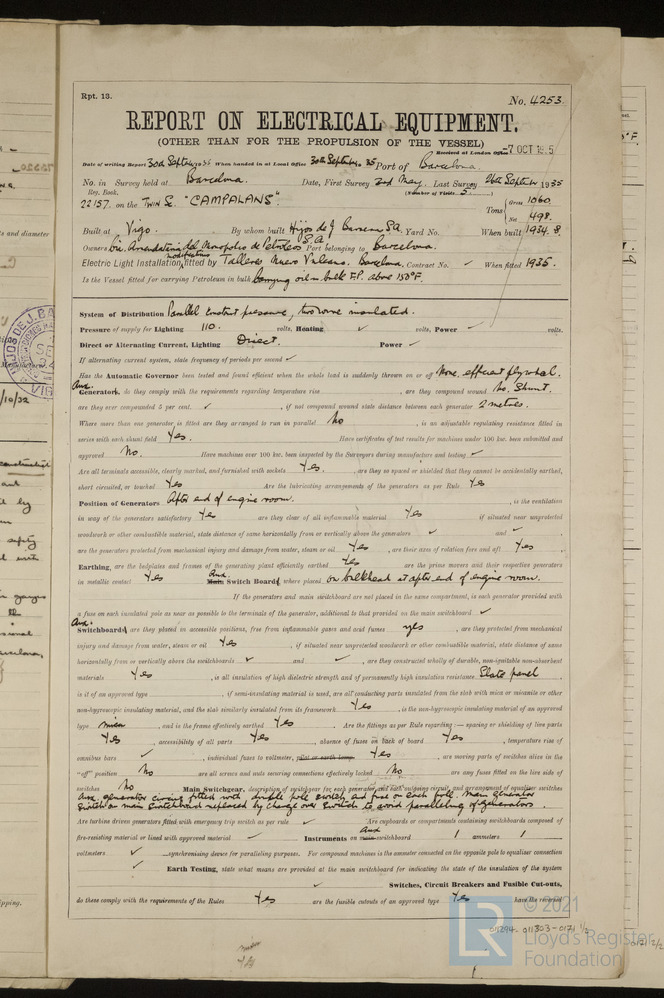 Rpt. 13.
No. 4253.
REPORT ON ELECTRICAL EQUIPMENT.
(OTHER THAN FOR THE PROPULSION OF THE VESSEL)
Received at London Office -7 OCT 1935
Date of writing Report 30th Septr 1935 When handed in at Local Office 30th Septr 35 Port of Barcelona.
No. in Survey held at Barcelona. Date, First Survey 3rd May. Last Survey 26th Septr 1935
Reg. Book. (Number of Visits 5)
22157. on the Twin Sc. "CAMPALANS" Tons Gross 1060. Net 498.
Built at Vigo. By whom built Hijos de J Barreras SA. Yard No. When built 1934.8.
Owners Cia. Arrendataria del Monopolio de Petroleos S.A. Port belonging to Barcelona.
Electric Light Installation modifications fitted by Talleres Nuevo Vulcano. Barcelona. Contract No. ✓ When fitted 1935.
Is the Vessel fitted for carrying Petroleum in bulk Carrying oil in bulk F.P. above 150°F.
System of Distribution Parallel constant pressure, two wire insulated.
Pressure of supply for Lighting 110. volts, Heating ✓ volts, Power ✓ volts.
Direct or Alternating Current, Lighting Direct. Power ✓
If alternating current system, state frequency of periods per second ✓
Has the Automatic Governor been tested and found efficient when the whole load is suddenly thrown on or off None. efficient flywheel.
Aux. Generators, do they comply with the requirements regarding temperature rise , are they compound wound No. Shunt.
are they over compounded 5 per cent. ✓ , if not compound wound state distance between each generator 2 metres.
Where more than one generator is fitted are they arranged to run in parallel No , is an adjustable regulating resistance fitted in
series with each shunt field Yes. Have certificates of test results for machines under 100 kw. been submitted and
approved No. Have machines over 100 kw. been inspected by the Surveyors during manufacture and testing ✓
Are all terminals accessible, clearly marked, and furnished with sockets Yes. , are they so spaced or shielded that they cannot be accidentally earthed,
short circuited, or touched Yes Are the lubricating arrangements of the generators as per Rule Yes
Position of Generators After end of engine room. , is the ventilation
in way of the generators satisfactory Yes are they clear of all inflammable material Yes if situated near unprotected
woodwork or other combustible material, state distance of same horizontally from or vertically above the generators ✓ and ✓ ,
are the generators protected from mechanical injury and damage from water, steam or oil Yes , are their axes of rotation fore and aft Yes.
Earthing, are the bedplates and frames of the generating plant efficiently earthed Yes are the prime movers and their respective generators
in metallic contact Yes Aux. Main Switch Boards, where placed on bulkhead at after end of engine room.
If the generators and main switchboard are not placed in the same compartment, is each generator provided with
a fuse on each insulated pole as near as possible to the terminals of the generator, additional to that provided on the main switchboard ✓
Aux. Switchboards, are they placed in accessible positions, free from inflammable gases and acid fumes yes , are they protected from mechanical
injury and damage from water, steam or oil Yes , if situated near unprotected woodwork or other combustible material, state distance of same
horizontally from or vertically above the switchboards ✓ and ✓ , are they constructed wholly of durable, non-ignitable non-absorbent
materials Yes , is all insulation of high dielectric strength and of permanently high insulation resistance Slate panel ,
is it of an approved type , if semi-insulating material is used, are all conducting parts insulated from the slab with mica or micanite or other
non-hygroscopic insulating material, and the slab similarly insulated from its framework Yes , is the non-hygroscopic insulating material of an approved
type mica , and is the frame effectively earthed Yes . Are the fittings as per Rule regarding:— spacing or shielding of live parts
Yes , accessibility of all parts Yes , absence of fuses on back of board Yes , temperature rise of
omnibus bars ✓ , individual fuses to voltmeter, pilot or earth lamp Yes , are moving parts of switches alive in the
"off" position No are all screws and nuts securing connections effectively locked No are any fuses fitted on the live side of
switches No Main Switchgear, description of switchgear for each generator and each outgoing circuit, and arrangement of equaliser switches
Aux. generator circuit fitted with double pole switch, and fuse on each pole. Main generator
switch on main switchboard replaced by change over switch to avoid paralleling of generators.
Are turbine driven generators fitted with emergency trip switch as per rule ✓ Are cupboards or compartments containing switchboards composed of
fire-resisting material or lined with approved material ✓ Instruments on Aux. main switchboard 1 ammeters 1
voltmeters ✓ synchronising device for paralleling purposes. For compound machines is the ammeter connected on the opposite pole to equaliser connection
✓ Earth Testing, state what means are provided at the main switchboard for indicating the state of the insulation of the system
✓ Switches, Circuit Breakers and Fusible Cut-outs,
do these comply with the requirements of the Rules Yes are the fusible cutouts of an approved type Yes have the reversed
© 2021
Lloyd's Register
Foundation
011294-011303-0171 1/2